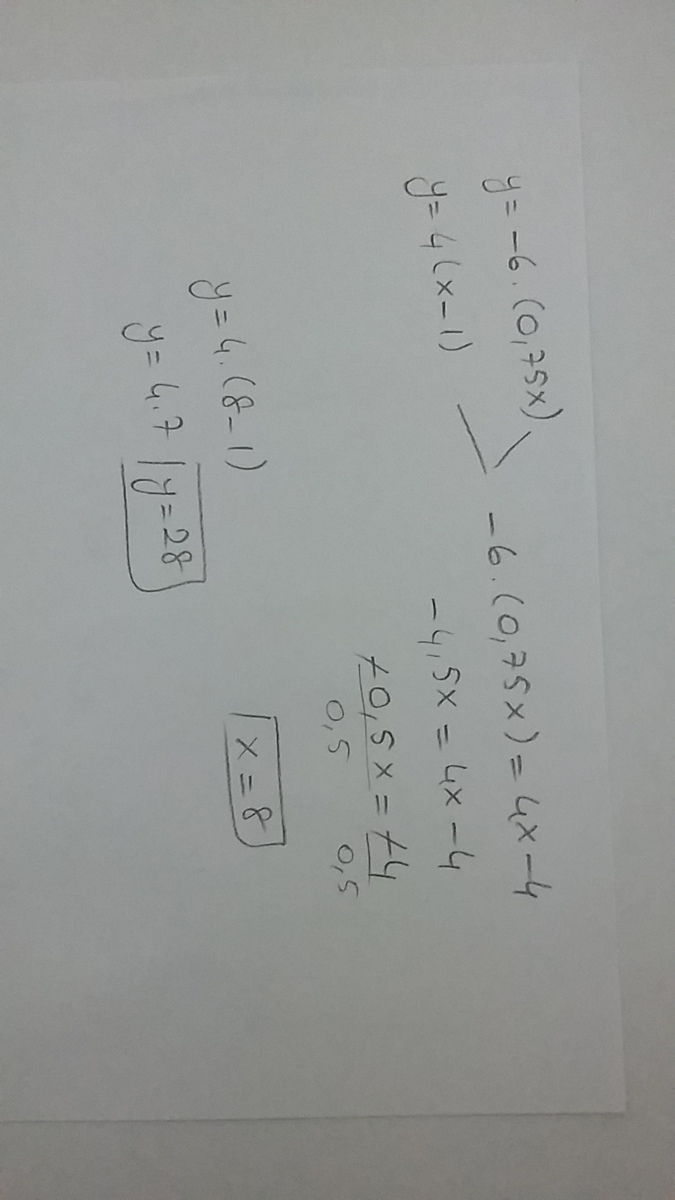 y = -6. (0,75x)
y = 4(x-1)
-6. (0,75x) = 4x-4
-4,5x = 4x-4
-0,5x = -4
0,5 0,5
x = 8
y = 4. (8-1)
y = 4.7 y = 28